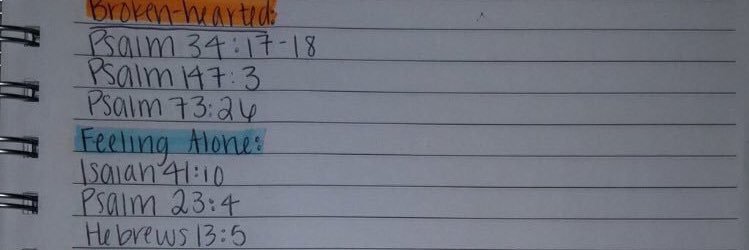 Broken-hearted:
Psalm 34:17-18
Psalm 147:3
Psalm 73:26
Feeling Alone:
Isaiah 41:10
Psalm 23:4
Hebrews 13:5